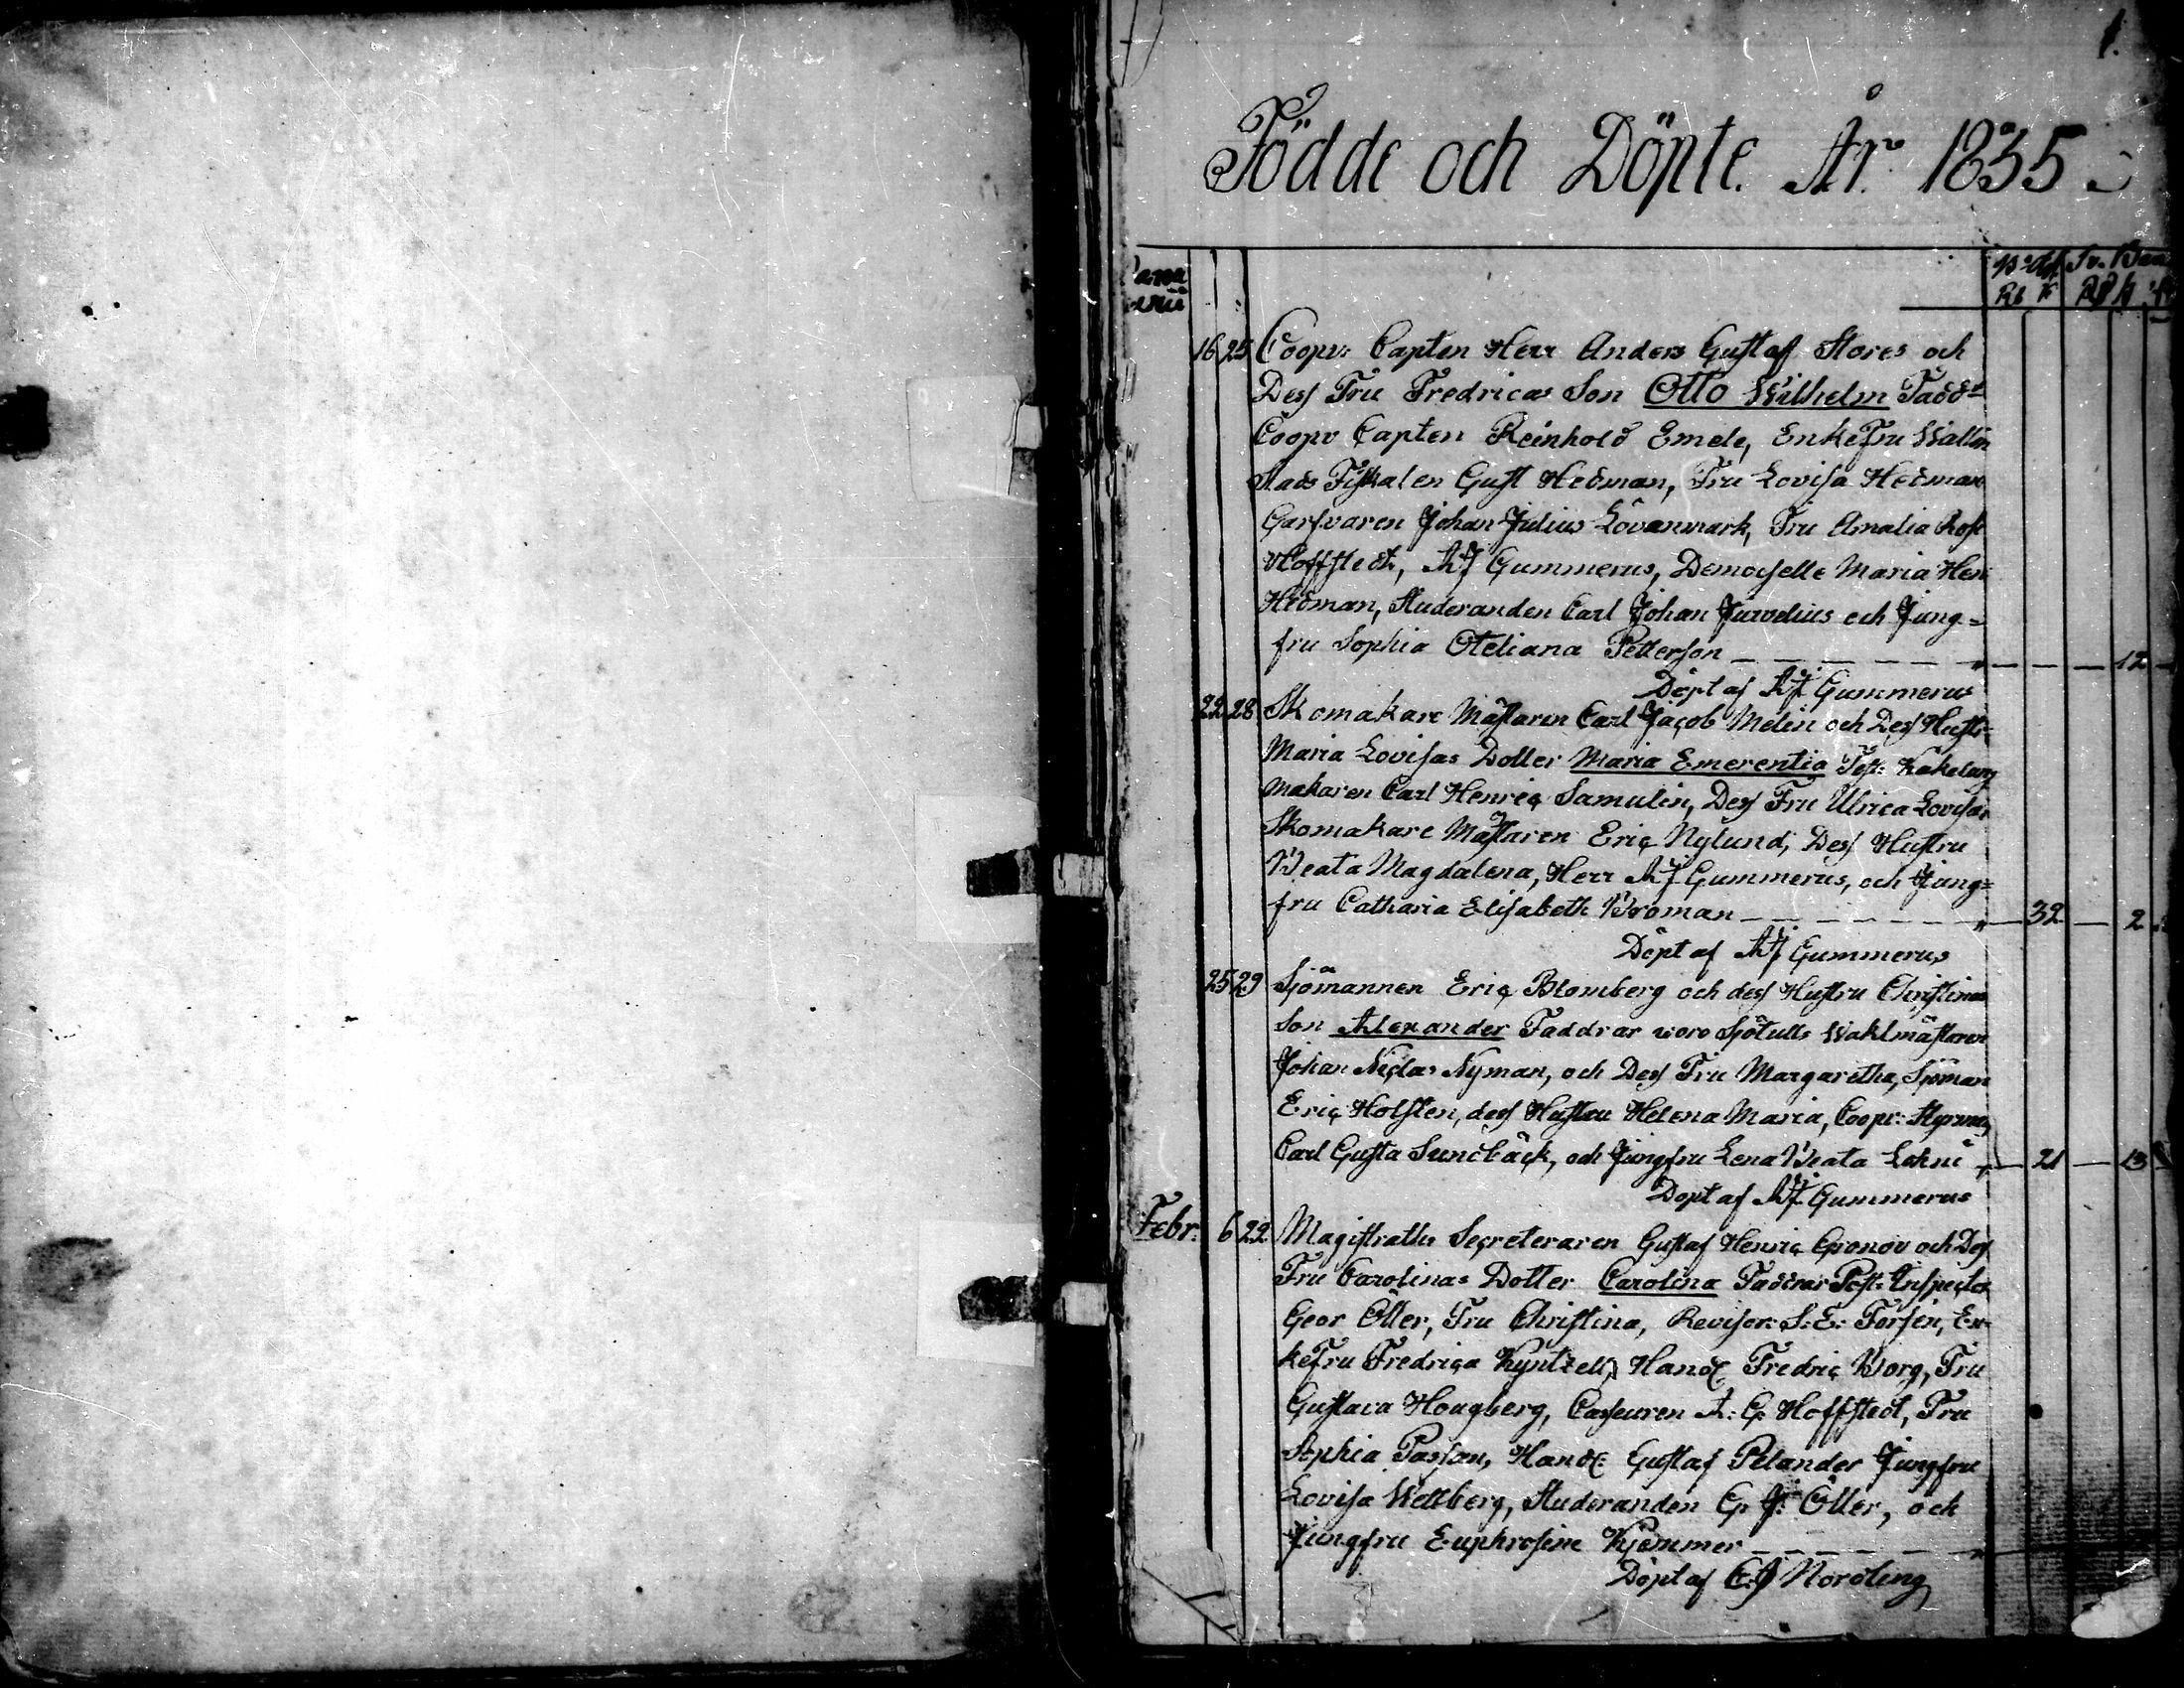 1.
Födde och Döpte År 1835
16 25 Coopv: Capten Herr Anders Gustaf Stores och
Dess Fru Fredricas Son Otto Wilhelm Fadd=
Coopv Capten Reinhold Emele, Enkefru Wallin
Stads Fiskalen Gust Hedman, Fru Lovisa Hedman
Garfvaren Johan Julius Lövanmark, Fru Amalia
Hoffstedt, AJ Gummerus, Demoiselle Maria Hen
Hedman, Studeranden Carl Johan Jurvelius och Jung=
fru Sophia Oteliana Petterson 12
Döpt af AJ Gummerus
22 28 Skomakare Mästaren Carl Jacob Melin och Dess Hustr:
Maria Lovisas Dotter Maria Emerentia Test: Kakelung
makaren Carl Henric Samulin, Dess Fru Ulrica Lovisa
Skomakare Mästaren Eric Nylund, Dess Hustru
Beata Magdalena, Herr AJ Gummerus, och Jung=
fru Catharia Elisabeth Broman 32 2
Döpt af AJ Gummerus
25 29 Sjömannen Eric Blomberg och dess Hustru Christinas
Son Alexander Faddrar woro Sjötulls Waktmästaren
Johan Niclas Nyman, och Dess Fru Margaretha, Sjöman
Eric Holsten, dess Hustru Helena Maria, Coopv: Styrman
Carl Gusta Sundbäck, och Jungfru Lena Beata 21 13
Döpt af AJ Gummerus
Febr: 6 22 Magistrats Secreteraren Gustaf Henric Gronov och Dess
Fru Carolinas Dotter Carolina Faddrar Post-Inspector
Geor Öller, Fru Christina, Revisor: S: E: Forsén, En-
kefru Fredrica Kyntzell, Handl Fredric Borg, Fru
Gustava Hougberg, Casseuren A: G: Hoffstedt, Fru
Sophia Passan, Handl: Gustaf Pelander Jungfru
Lovisa Wellberg, Studeranden G. J: Öller, och
Jungfru Euphrosine Kjemmer
Döpt af E: J Nordling